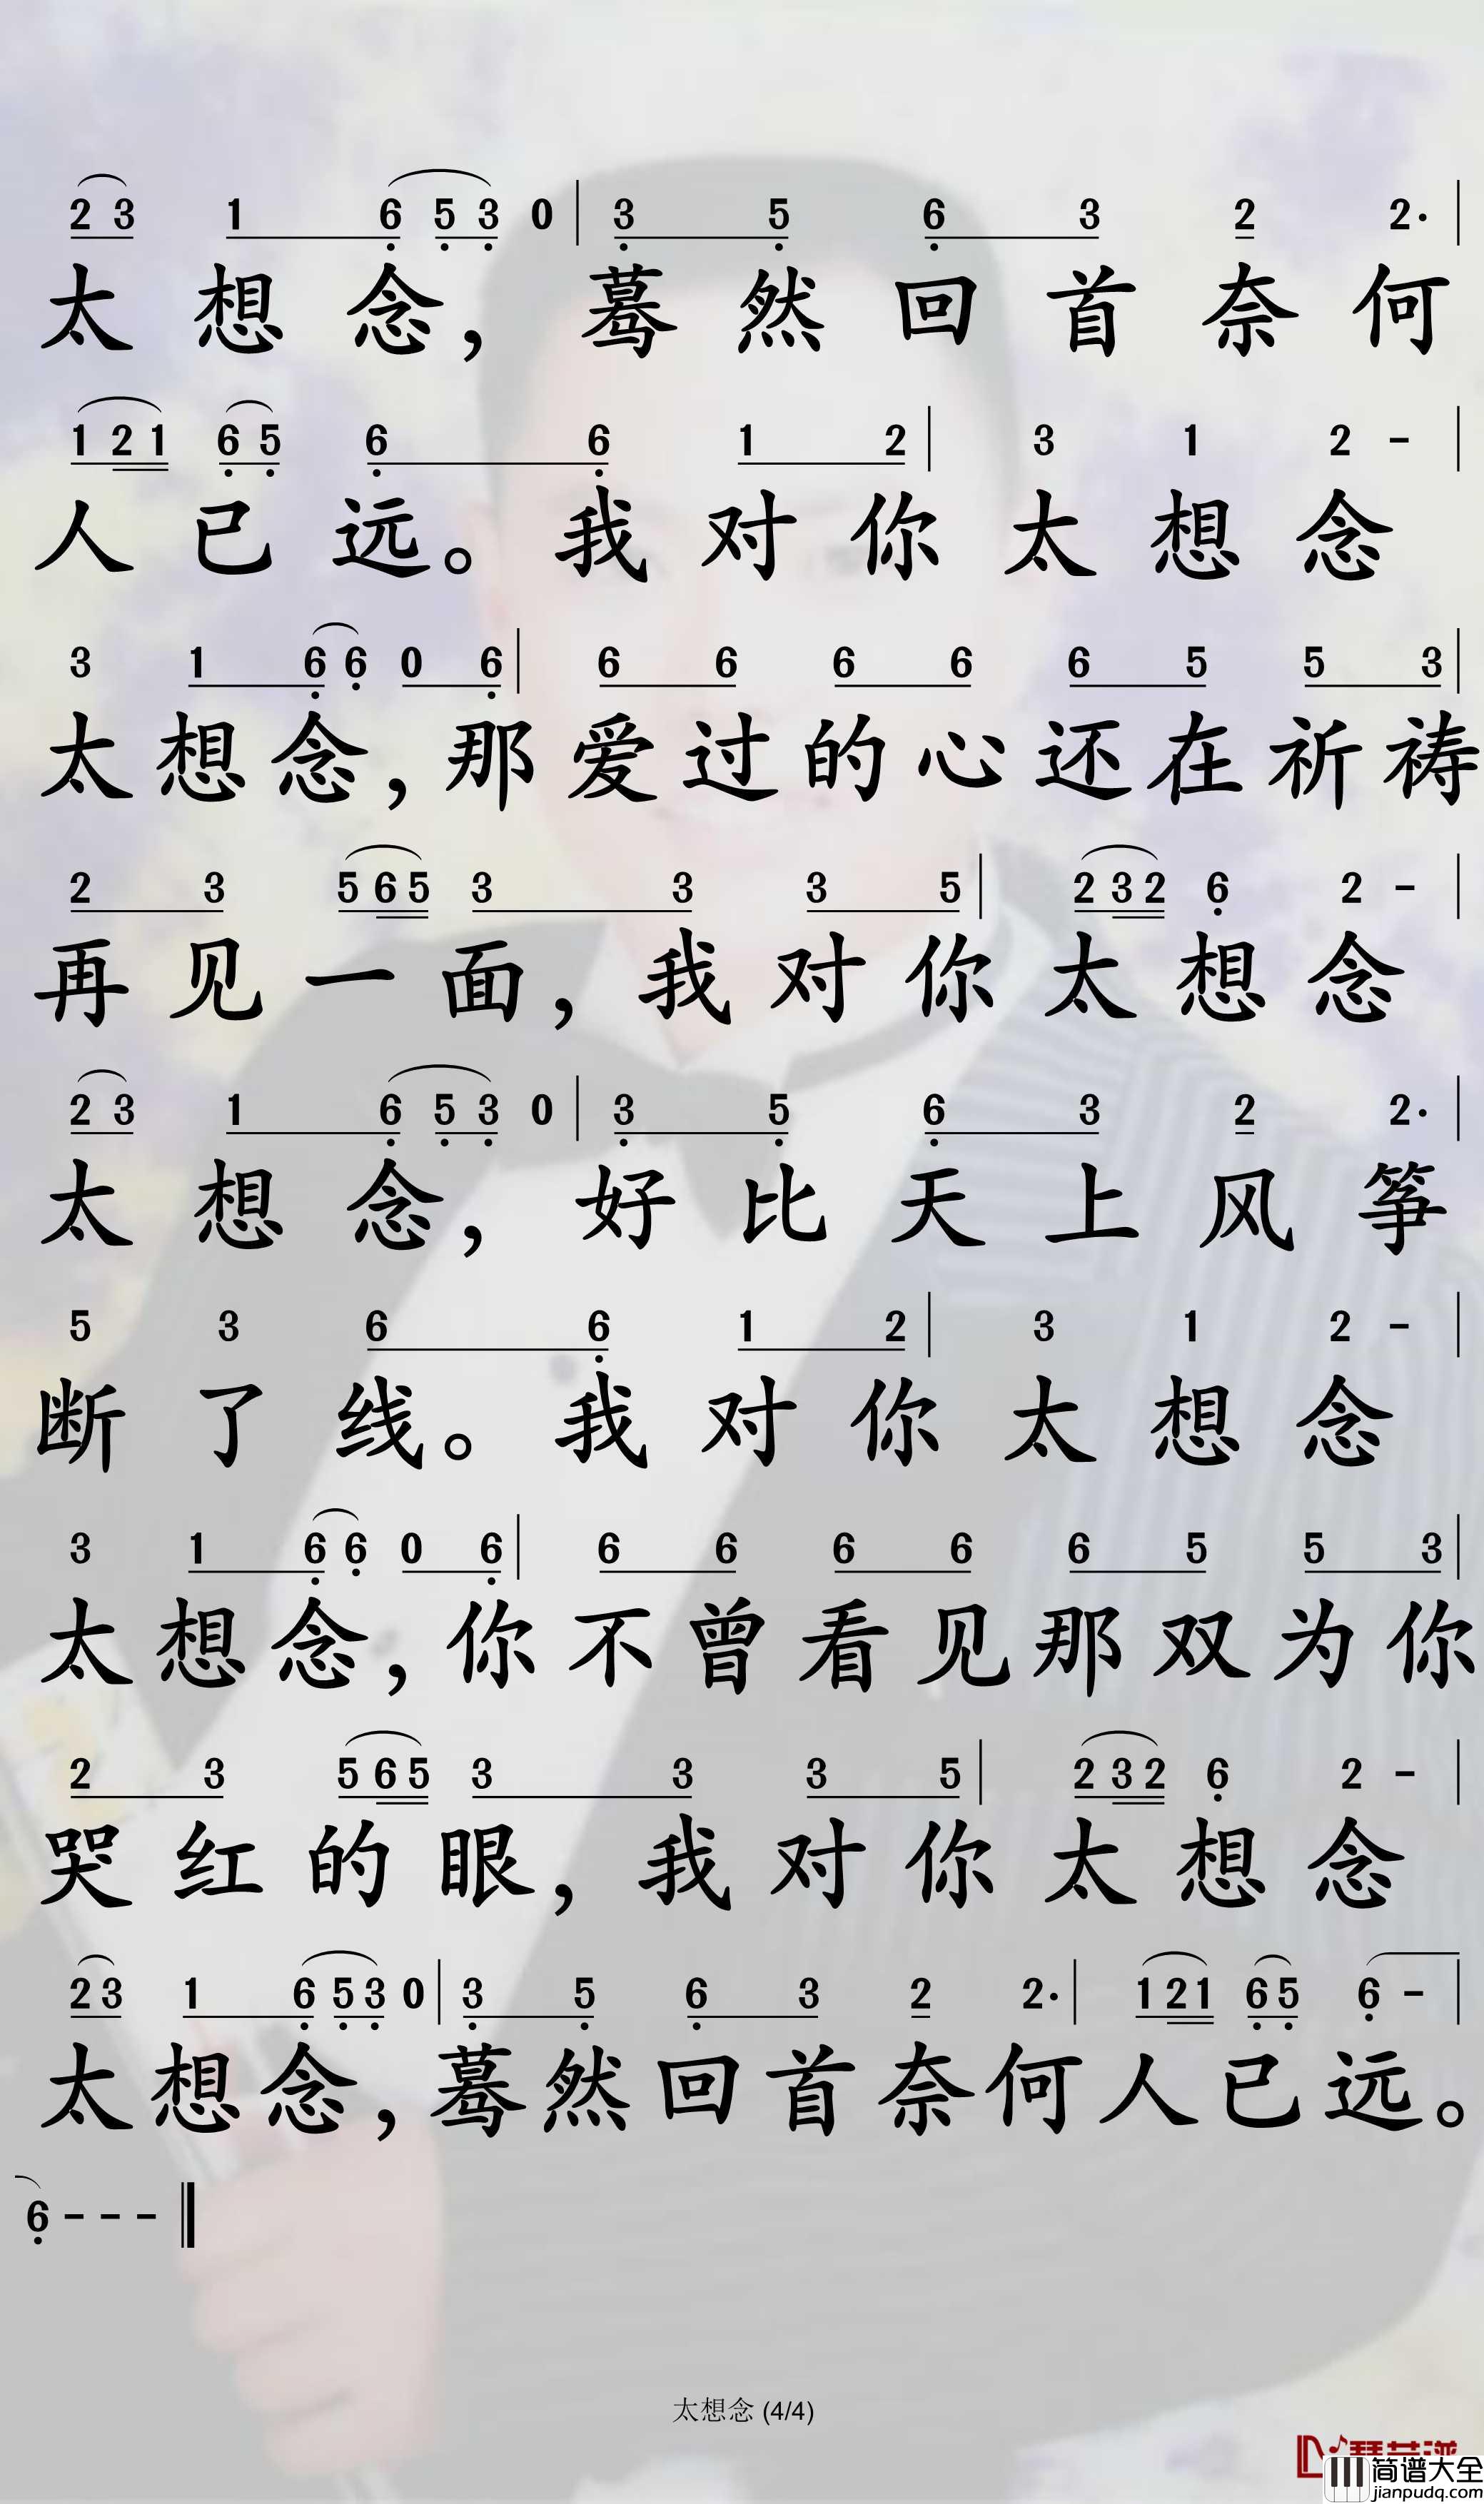 2 3 1 6 5 3 0 | 3 5 6 3 2 2· |
太想念，蓦然回首奈何
1 2 1 6 5 6 6 1 2 | 3 1 2 - |
人已远。我对你太想念
3 1 6 6 0 6 | 6 6 6 6 6 5 5 3 |
太想念，那爱过的心还在祈祷
2 3 5 6 5 3 3 3 5 | 2 3 2 6 2 - |
再见一面，我对你太想念
2 3 1 6 5 3 0 | 3 5 6 3 2 2· |
太想念，好比天上风筝
5 3 6 6 1 2 | 3 1 2 - |
断了线。我对你太想念
3 1 6 6 0 6 | 6 6 6 6 6 5 5 3 |
太想念，你不曾看见那双为你
2 3 5 6 5 3 3 3 5 | 2 3 2 6 2 - |
哭红的眼，我对你太想念
2 3 1 6 5 3 0 | 3 5 6 3 2 2· | 1 2 1 6 5 6 - |
太想念，蓦然回首奈何人已远。
6 - - - ‖
太想念 (4/4)
简谱大全
jianpudq.com